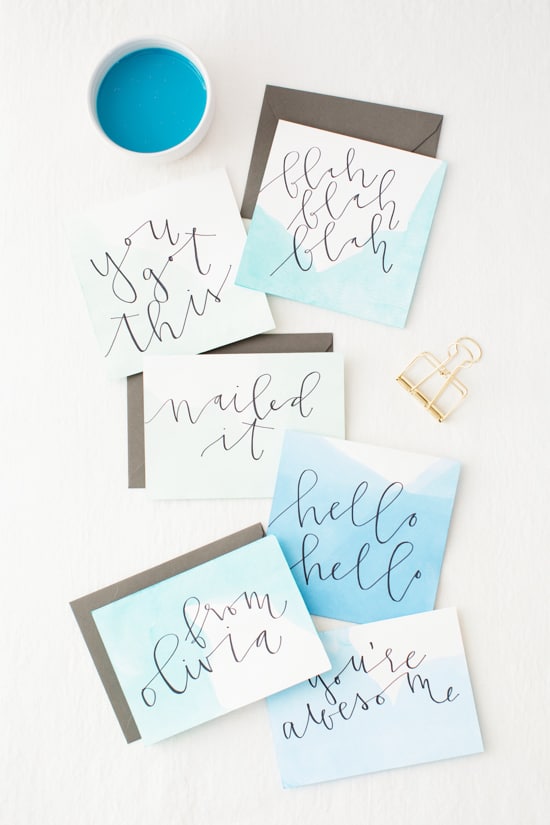 blah
blah
blah
you
got
this
nailed
it
hello
hello
from
olivia
you're
awesome